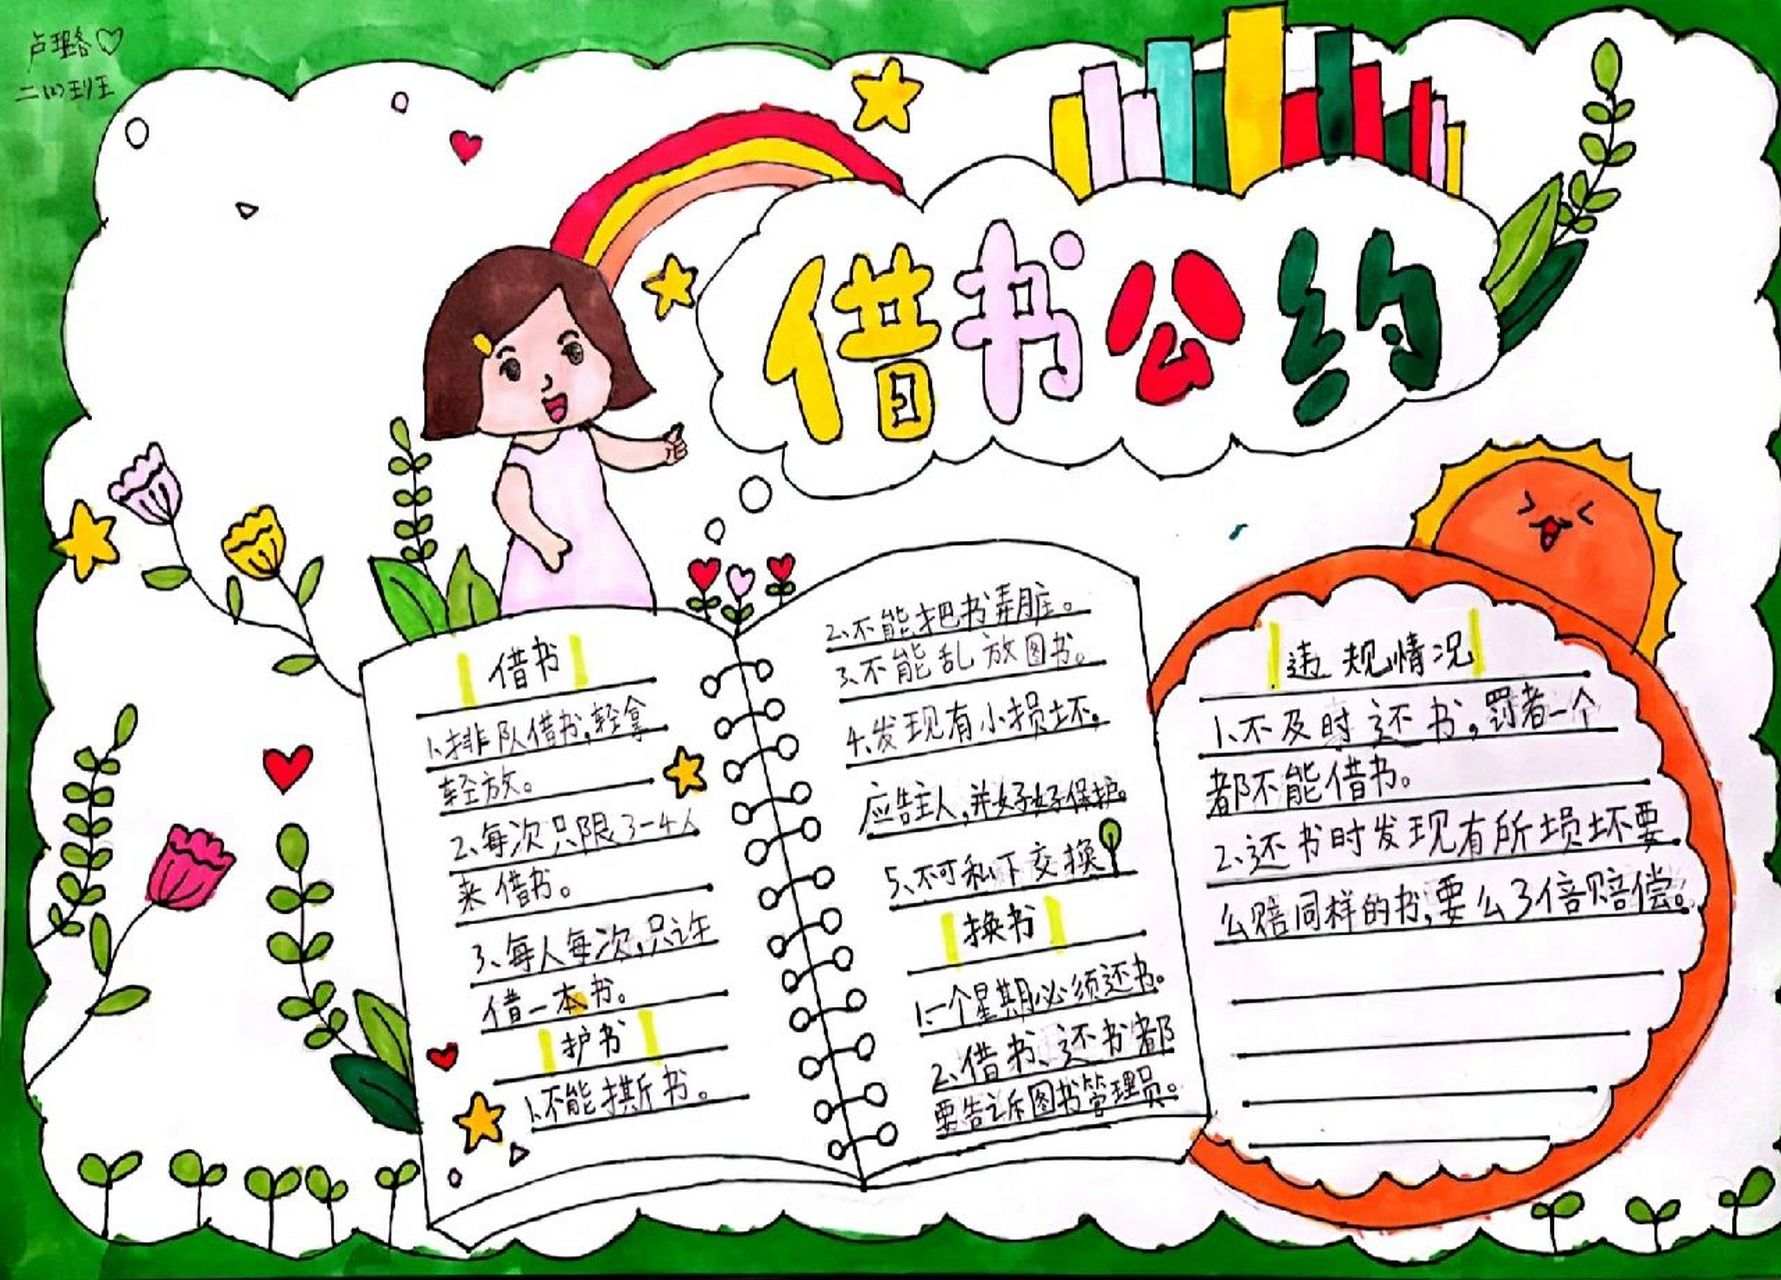 卢璐
二(4)班
借书公约
借书
1、排队借书,轻拿
轻放。
2、每次只限3-4人
来借书。
3、每人每次,只许
借一本书。
护书
1、不能撕书。
2、不能把书弄脏。
3、不能乱放图书。
4、发现有小损坏,
应告主人,并好好保护。
5、不可私下交换
换书
1、一个星期必须还书。
2、借书、还书都
要告诉图书管理员。
违规情况
1、不及时还书,罚者一个
都不能借书。
2、还书时发现有所损坏要
公赔同样的书,要公3倍赔偿。